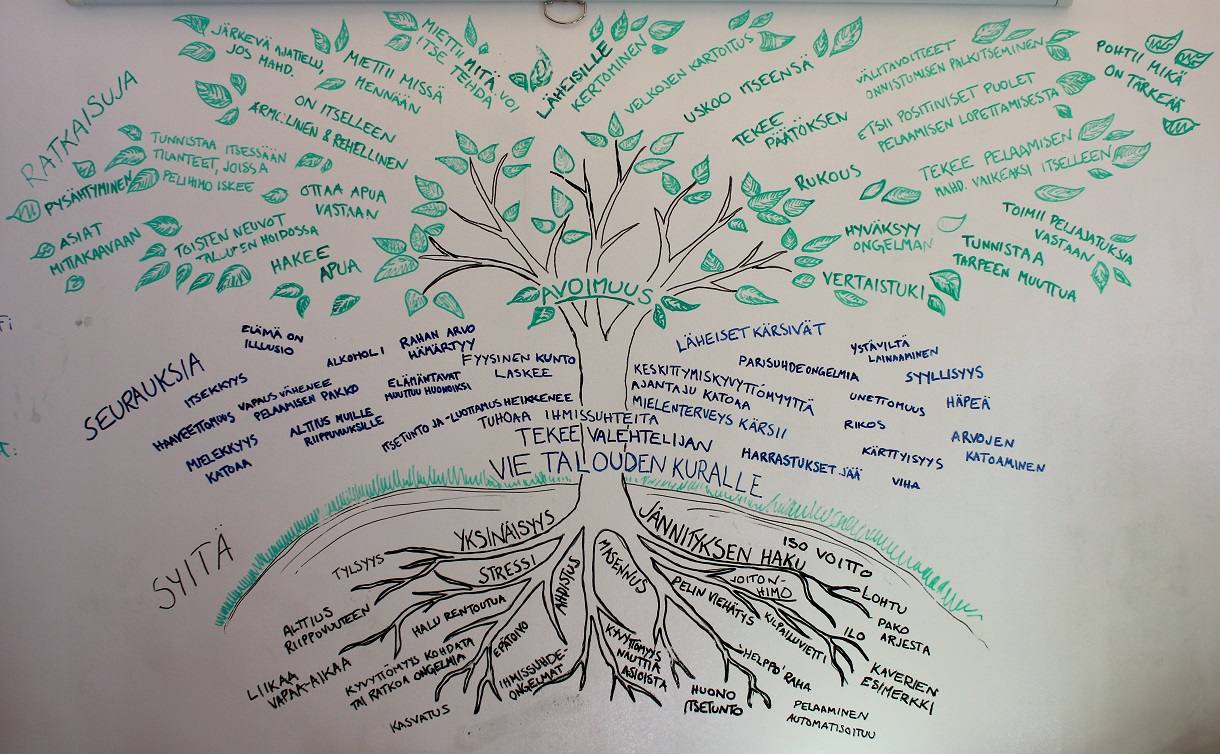 RATKAISUJA
JÄRKEVÄ AJATTELU,
JOS MAHD.
MIETTII MISSÄ
MENNÄÄN
MIETTII MITÄ VOI
ITSE TEHDÄ
LÄHEISILLE
KERTOMINEN
VELKOJEN KARTOITUS
USKOO ITSEENSÄ
VÄLITAVOITTEET
ONNISTUMISEN PALKITSEMINEN
POHTII MIKÄ
ON TÄRKEÄÄ
ON ITSELLEEN
ARMOLLINEN & REHELLINEN
TEKEE
PÄÄTÖKSEN
ETSII POSITIIVISET PUOLET
PELAAMISEN LOPETTAMISESTA
TUNNISTAA ITSESSÄÄN
TILANTEET, JOISSA
PELIHIMO ISKEE
PYSÄHTYMINEN
OTTAA APUA
VASTAAN
RUKOUS
TEKEE PELAAMISEN
MAHD. VAIKEAKSI ITSELLEEN
ASIAT
MITTAKAAVAAN
TOISTEN NEUVOT
TALOUDEN HOIDOSSA
HAKEE
APUA
HYVÄKSYY
ONGELMAN
TOIMII PELIAJATUKSIA
VASTAAN
TUNNISTAA
TARPEEN MUUTTUA
VERTAISTUKI
AVOIMUUS
SEURAUKSIA
ELÄMÄ ON
ILLUUSIO
ALKOHOLI
RAHAN ARVO
HÄMÄRTYY
FYYSINEN KUNTO
LASKEE
LÄHEISET KÄRSIVÄT
PARISUHDEONGELMIA
YSTÄVILTÄ
LAINAAMINEN
SYYLLISYYS
ITSEKKYYS
HAAVEETTOMUUS
VAPAUS VÄHENEE
PELAAMISEN PAKKO
ELÄMÄNTAVAT
MUUTTUU HUONOIKSI
KESKITTYMISKYVYTTÖMYYTTÄ
AJANTAJU KATOAA
MIELENTERVEYS KÄRSII
UNETTOMUUS
HÄPEÄ
MIELEKKYYS
KATOAA
ALTTIUS MUILLE
RIIPPUVUUKSILLE
ITSETUNTO JA -LUOTTAMUS HEIKKENEE
TUHOAA IHMISSUHTEITA
RIKOS
ARVOJEN
KATOAMINEN
TEKEE VALEHTELIJAN
HARRASTUKSET JÄÄ
KÄRTTYISYYS
VIHA
VIE TALOUDEN KURALLE
SYITÄ
YKSINÄISYYS
JÄNNITYKSEN HAKU
ISO VOITTO
TYLSYYS
STRESSI
AHDISTUS
MASENNUS
PELIN VIEHÄTYS
VOITON-
HIMO
LOHTU
ALTTIUS
RIIPPUVUUTEEN
HALU RENTOUTUA
KILPAILUVIETTI
ILO
PAKO
ARJESTA
LIIKAA
VAPAA-AIKAA
KYVYTTÖMYYS KOHDATA
TAI RATKOA ONGELMIA
EPÄTOIVO
IHMISSUHDE-
ONGELMAT
KYVYTTÖMYYS
NAUTTIA
ASIOISTA
"HELPPO" RAHA
KAVERIEN
ESIMERKKI
KASVATUS
HUONO
ITSETUNTO
PELAAMINEN
AUTOMATISOITUU